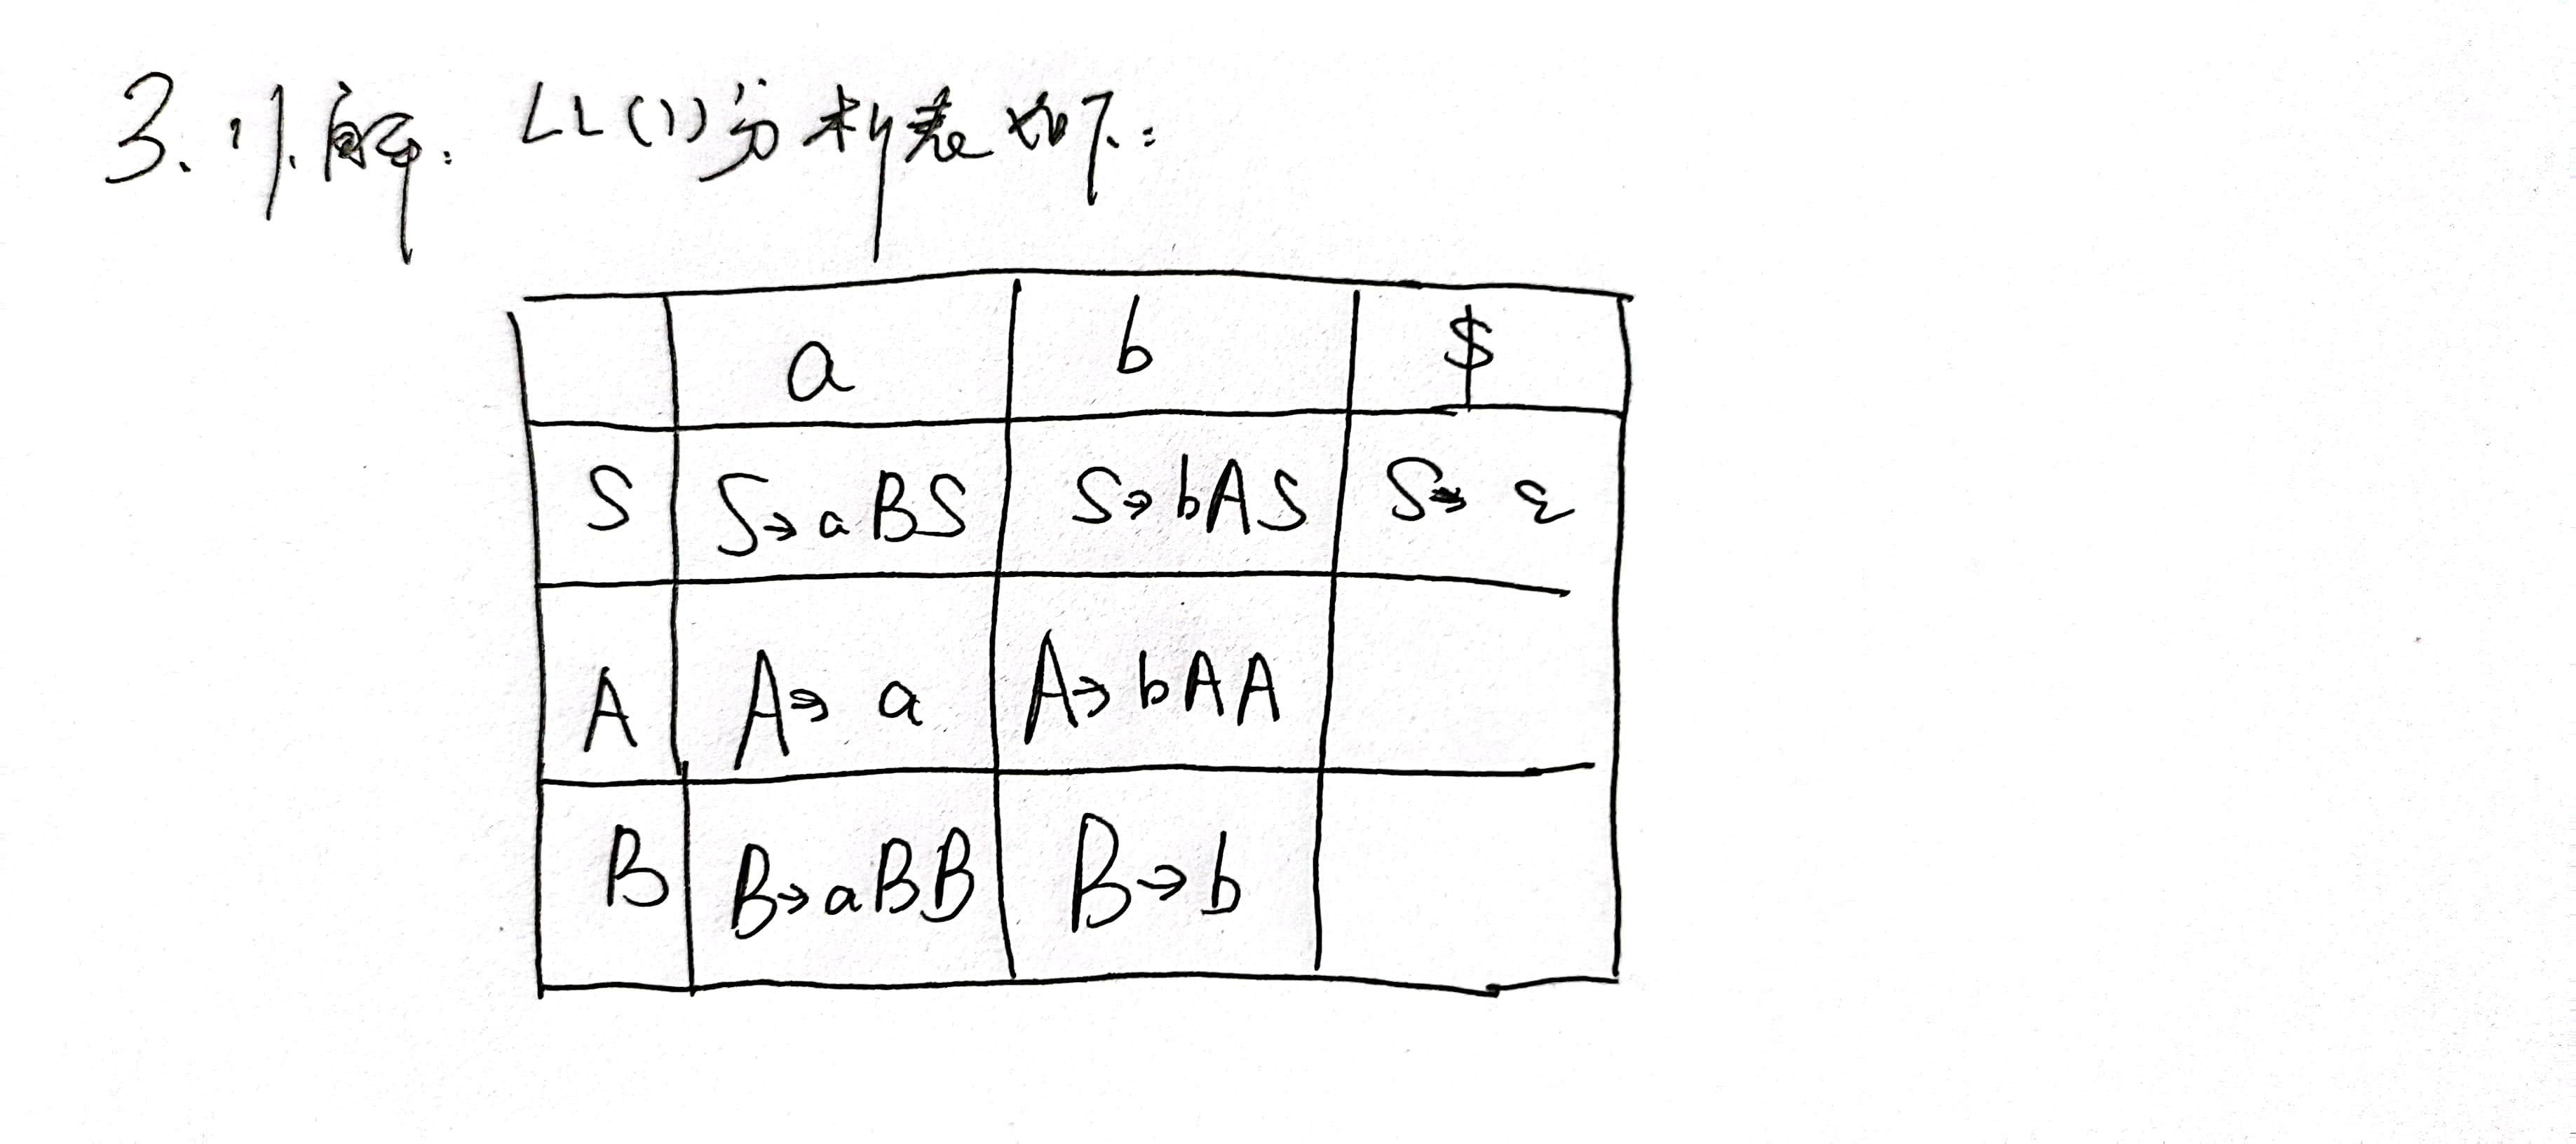 3. 1). 解: LL(1)分析表如下:
a b $
S S→aBS S→bAS S→ ε
A A→ a A→bAA
B B→aBB B→b